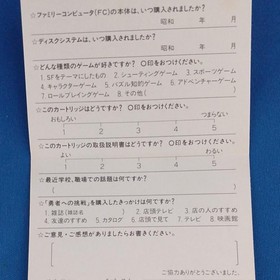 ☆ファミリーコンピュータ(FC)の本体は、いつ購入されましたか?
昭和 年 月
☆ディスクシステムは、いつ購入されましたか?
昭和 年 月
☆どんな種類のゲームが好きですか? ○印をおつけください。
1. SFをテーマにしたもの 2. シューティングゲーム 3. スポーツゲーム
4. キャラクターゲーム 5. パズル知的ゲーム 6. アドベンチャーゲーム
7. ロールプレイングゲーム 8. その他( )
☆このカートリッジはどうですか? ○印をおつけください。
おもしろい つまらない
1 2 3 4 5
☆このカートリッジの取扱説明書はどうですか? ○印をおつけください。
よい わるい
1 2 3 4 5
☆最近学校、職場での話題は何ですか?
( )
☆「勇者への挑戦」を購入したきっかけは何ですか?
1. 雑誌(雑誌名 ) 2. 店頭テレビ 3. 店の人のすすめ
4. 友達のすすめ 5. カタログ 6. 店頭で見て 7. テレビ 8. 映画館
☆ご意見・ご感想がありましたらお書きください。
ご協力ありがとうございました。